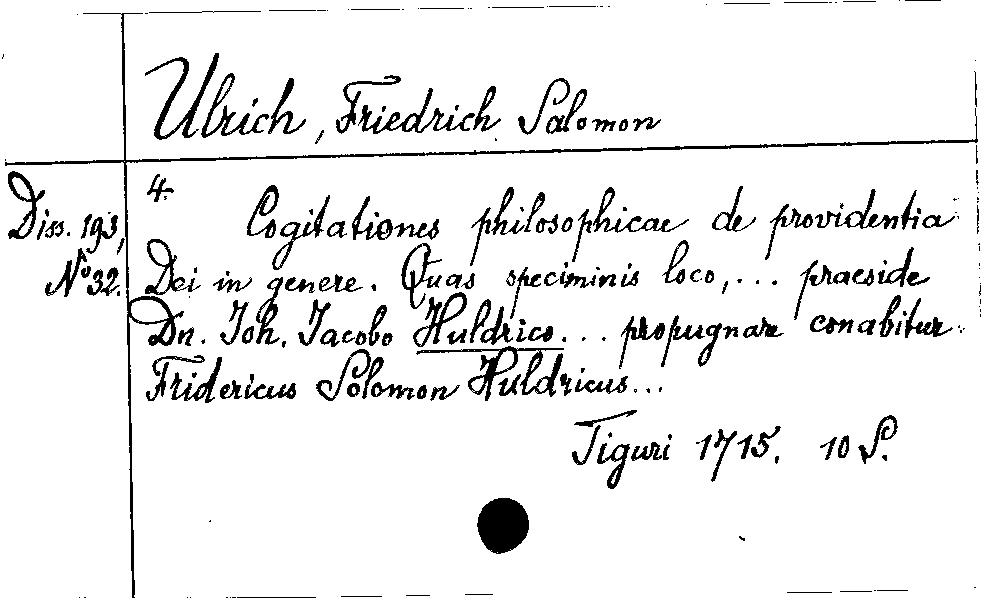 Ulrich, Friedrich Salomon
Diss. 193,
No 32.
4.
Cogitationes philosophicae de providentia
Dei in genere. Quas speciminis loco, ... praeside
Dn. Joh. Jacobo Huldrico ... propugnare conabitur
Fridericus Solomon Huldricus ...
Tiguri 1715. 10 S.